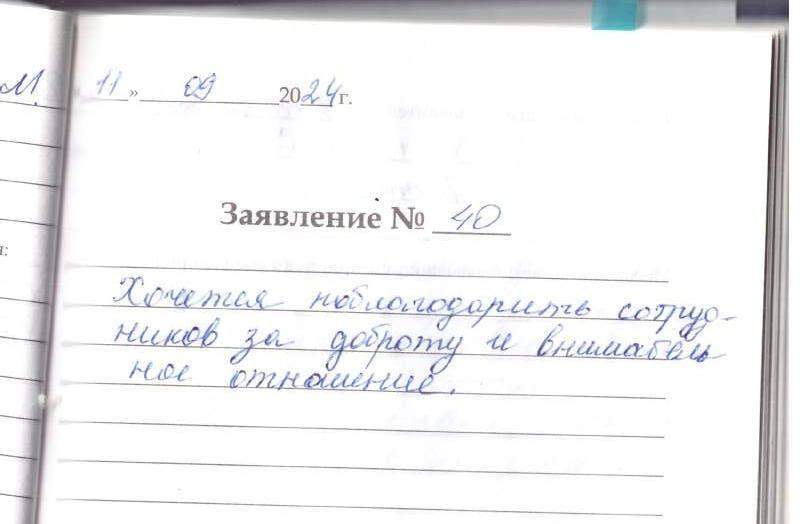 М.
11 » 09 2024 г.
Заявление № 40
Хочется поблагодарить сотруд-
ников за доброту и вниматель
ное отношение.